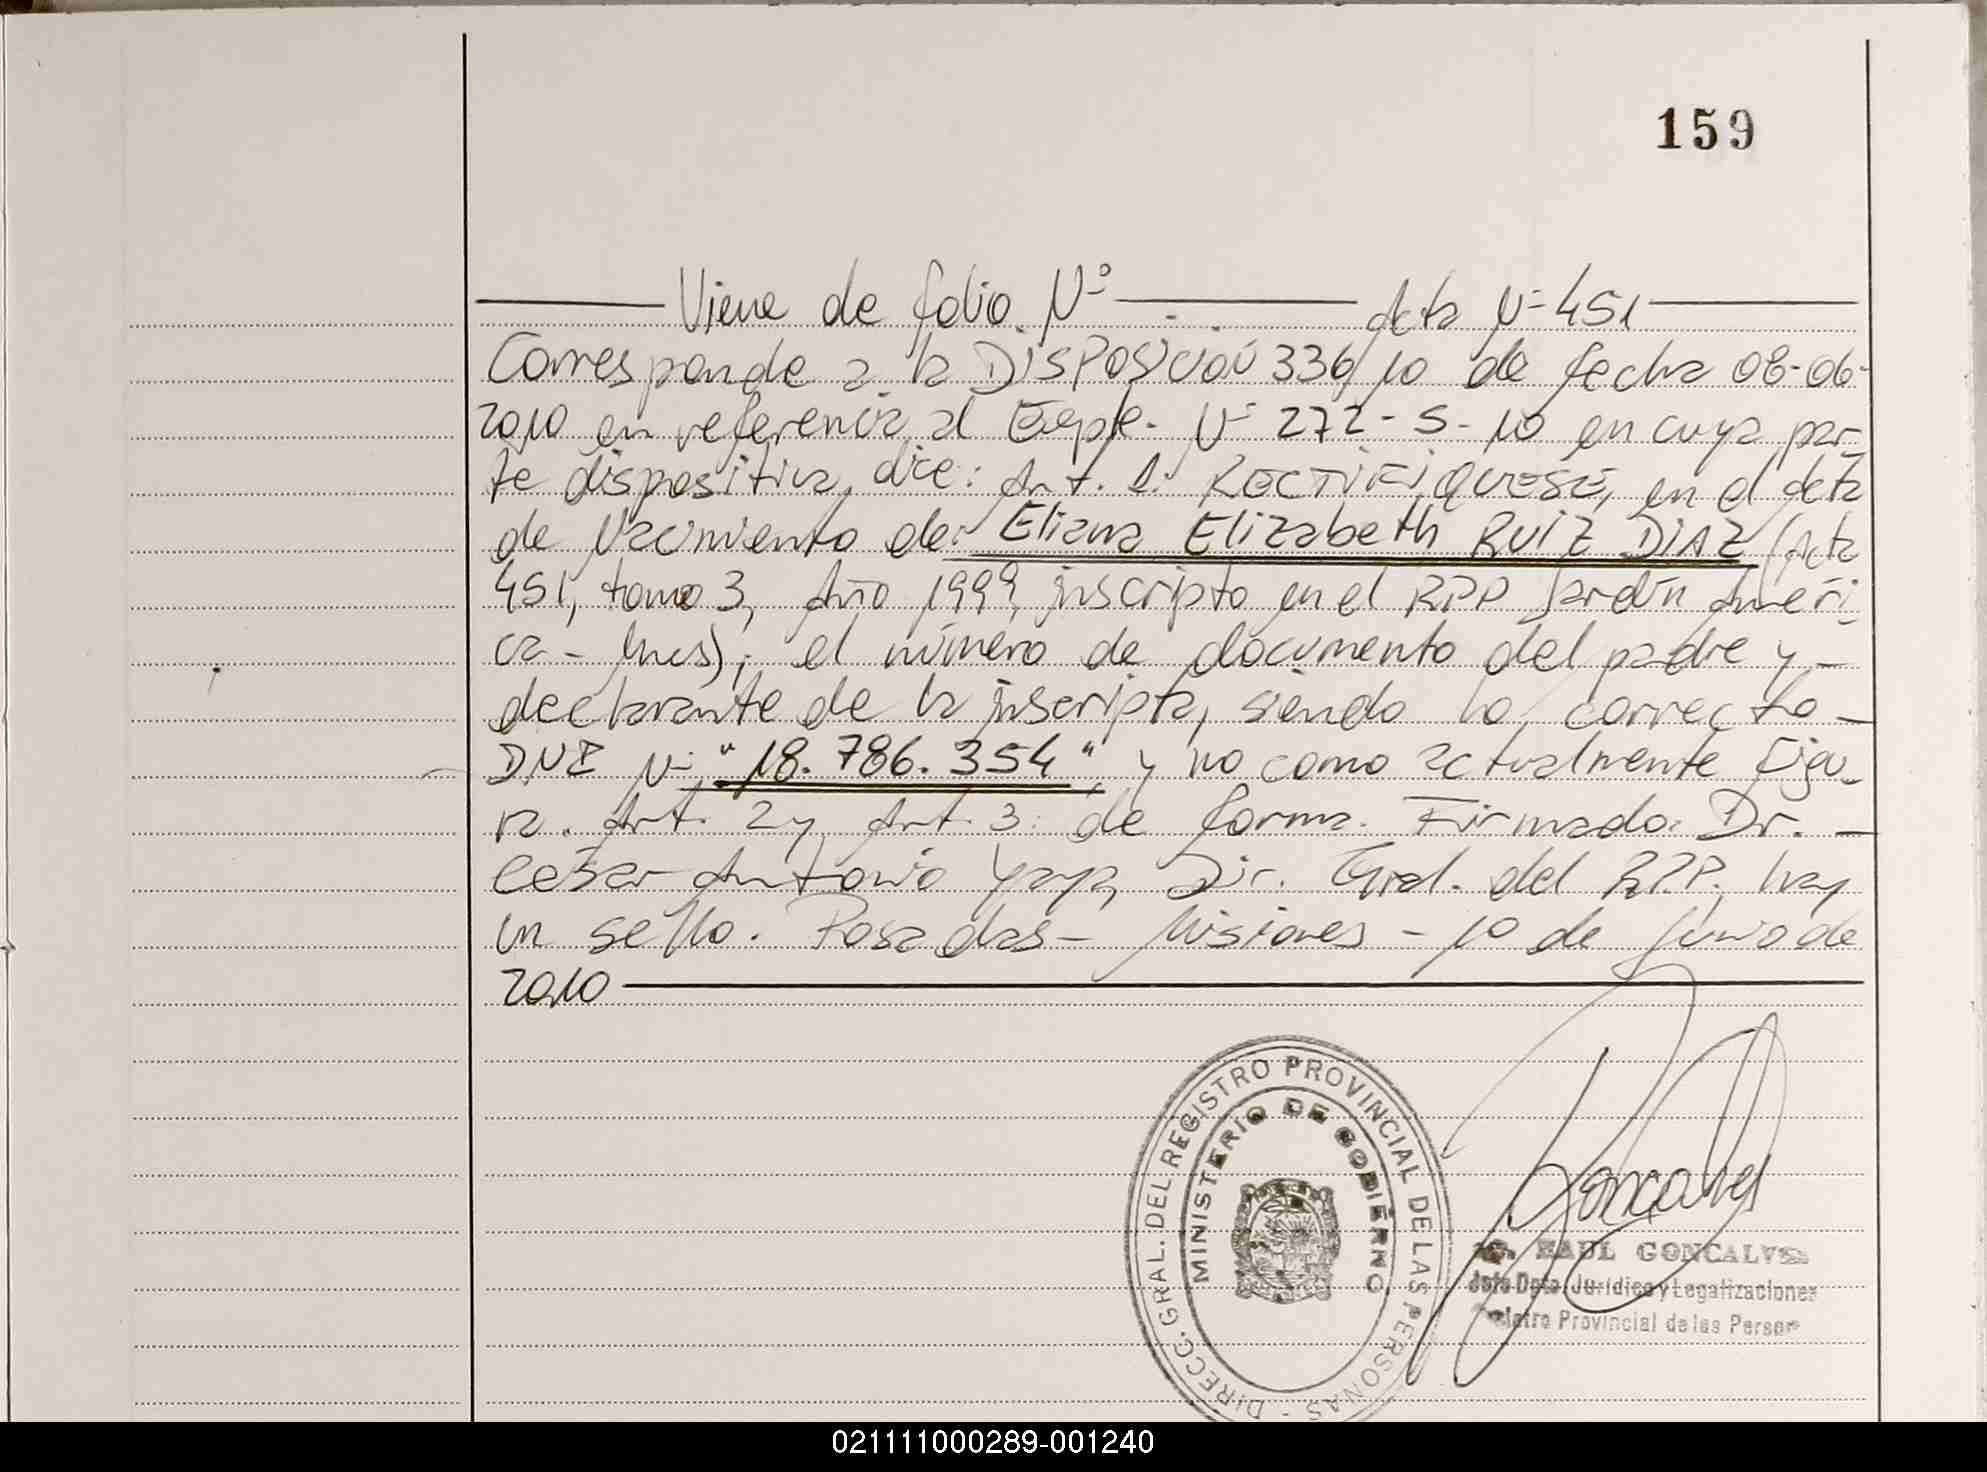 159
Viene de folio Nº Acta Nº 451
Corresponde a la DISPOSICIÓN 336/10 de fecha 08-06-
2010 en referencia al Expte. Nº 272-S-10 en cuya par-
te dispositiva, dice: Art. 1: RECTIFIQUESE, en el Acta
de Nacimiento de: Eliana Elizabeth RUIZ DIAZ (Acta
451, tomo 3, Año 1999, inscripto en el RPP Jardín Améri
ca - Mnes); el número de documento del padre y -
declarante de la inscripta, siendo lo correcto -
DNI Nº "18.786.354", y no como actualmente Figu-
ra. Art. 2 y Art. 3: de forma. Firmado: Dr. -
César Antonio Yaya, Dir. Gral. del R.P.P., hay
un sello. Posadas - Misiones - 10 de Junio de
2010
DIRECC. GRAL. DEL REGISTRO PROVINCIAL DE LAS PERSONAS -
MINISTERIO DE GOBIERNO
RAUL GONCALVES
Jefe Dpto. Jurídico y Legalizaciones
Registro Provincial de las Person
021111000289-001240